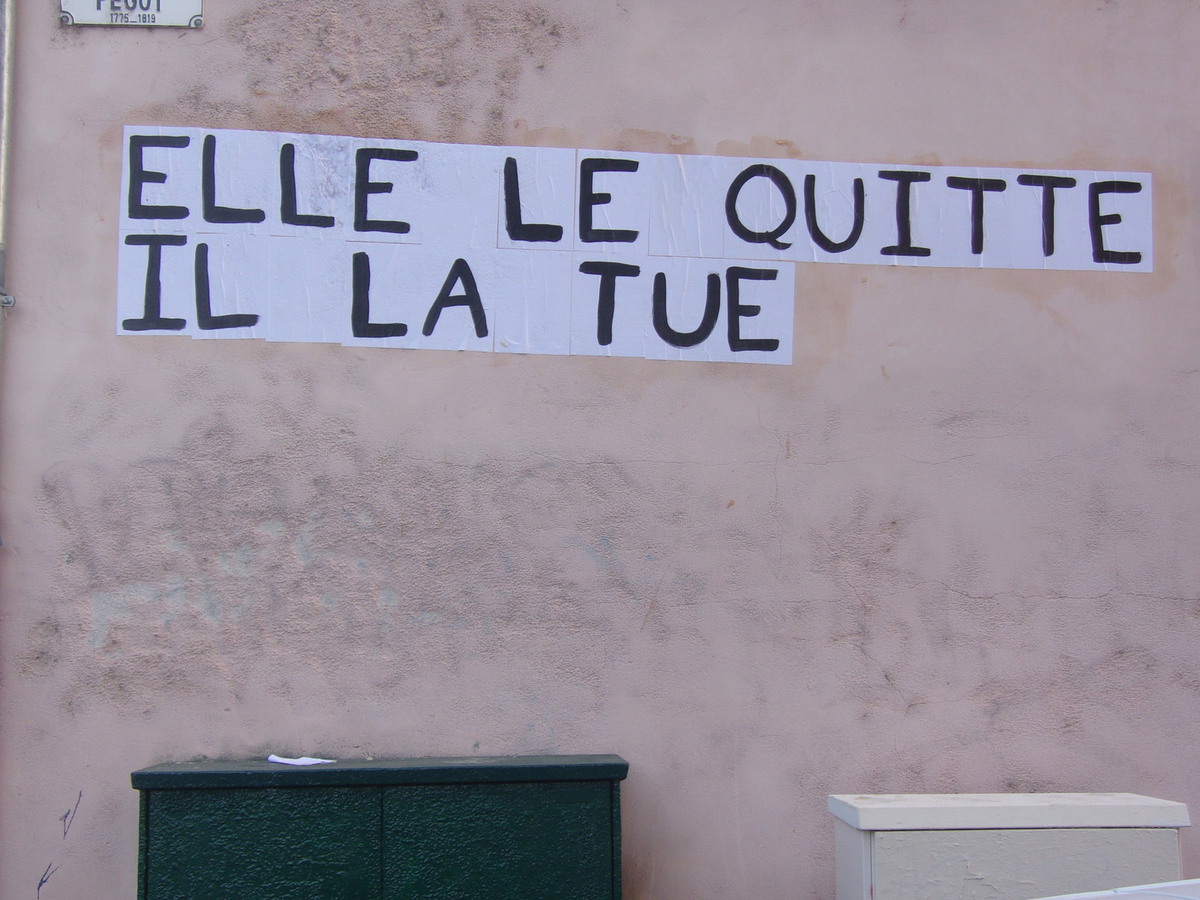 PEGOT
1775_1819
ELLE LE QUITTE
IL LA TUE